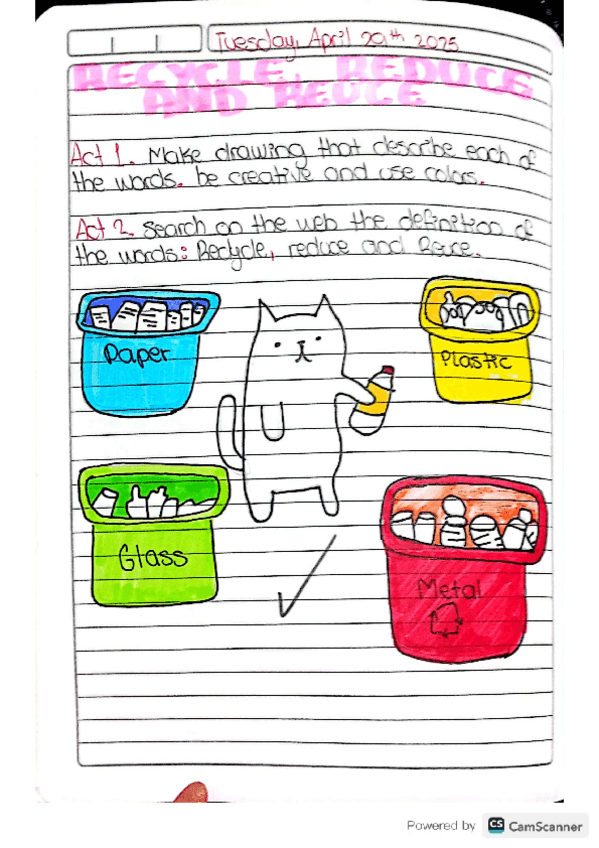 Tuesday, April 29th 2025
RECYCLE, REDUCE
AND REUCE
Act 1. Make drawing that describe each of
the words. be creative and use colors.
Act 2. Search on the web the definition of
the words: Recycle, reduce and Reuce.
Paper
Plastic
Glass
Metal
Powered by CS CamScanner